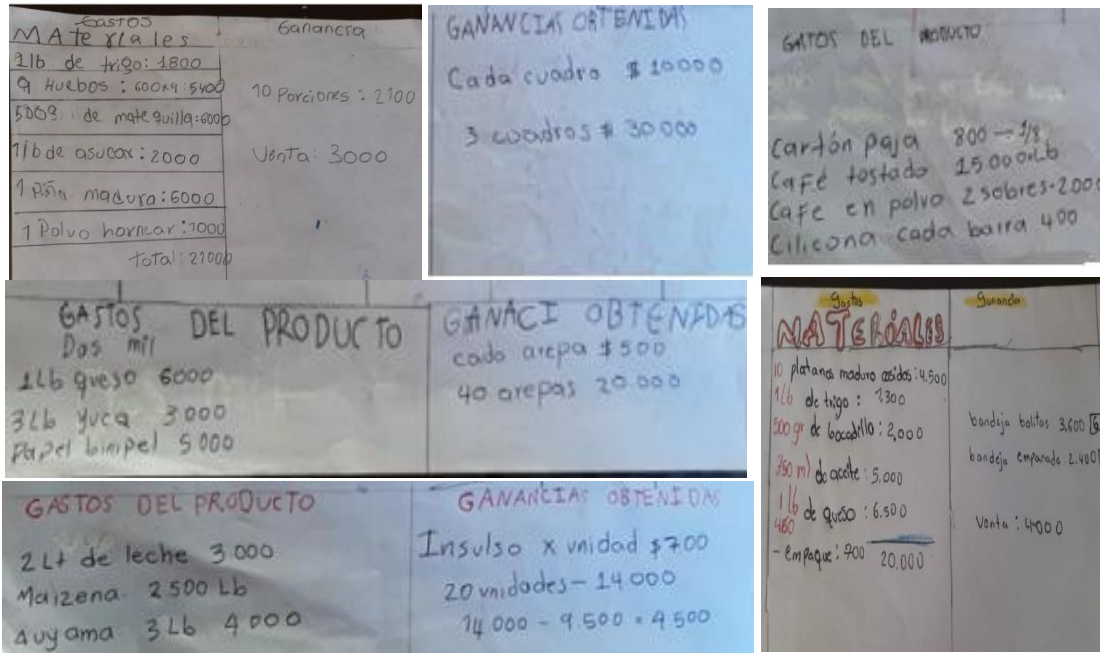 Gastos
MAteriales
1lb de trigo: 1800
9 Huebos: 600x9:5400
500g de mate quilla:6000
1lb de asucar: 2000
1 piña madura:6000
1 Polvo hornear:1000
total: 21000
Ganancia
10 Porciones: 2100
Venta: 3000
GANANCIAS OBTENIDAS
Cada cuadro $ 10000
3 cuadros $ 30000
GASTOS DEL PRODUCTO
Cartón paja 800 - 1/8
Café tostado 15.000 Lb
Cafe en polvo 2 sobres-2000
Cilicona cada barra 400
GASTOS DEL PRODUCTO
Dos mil
1Lb queso 6000
3Lb yuca 3000
Papel binipel 5000
GANACI OBTENIDAS
cada arepa $ 500
40 arepas 20.000
Gastos
MATERIALES
10 platanos maduro cosidos: 4.500
1Lb de trigo: 1300
500 gr de bocadillo: 2,000
750 ml de aceite: 5.000
1 lb de queso: 6.500
460
- empaque: 700
20.000
Ganancia
bandeja bolitas 3.600
bandeja empanada 2.400
Venta: 4000
GASTOS DEL PRODUCTO
2 Lt de leche 3000
Maizena 2500 Lb
Auyama 3Lb 4000
GANANCIAS OBTENIDAS
Insulso x unidad $700
20 unidades - 14.000
14 000 - 9.500 = 4.500